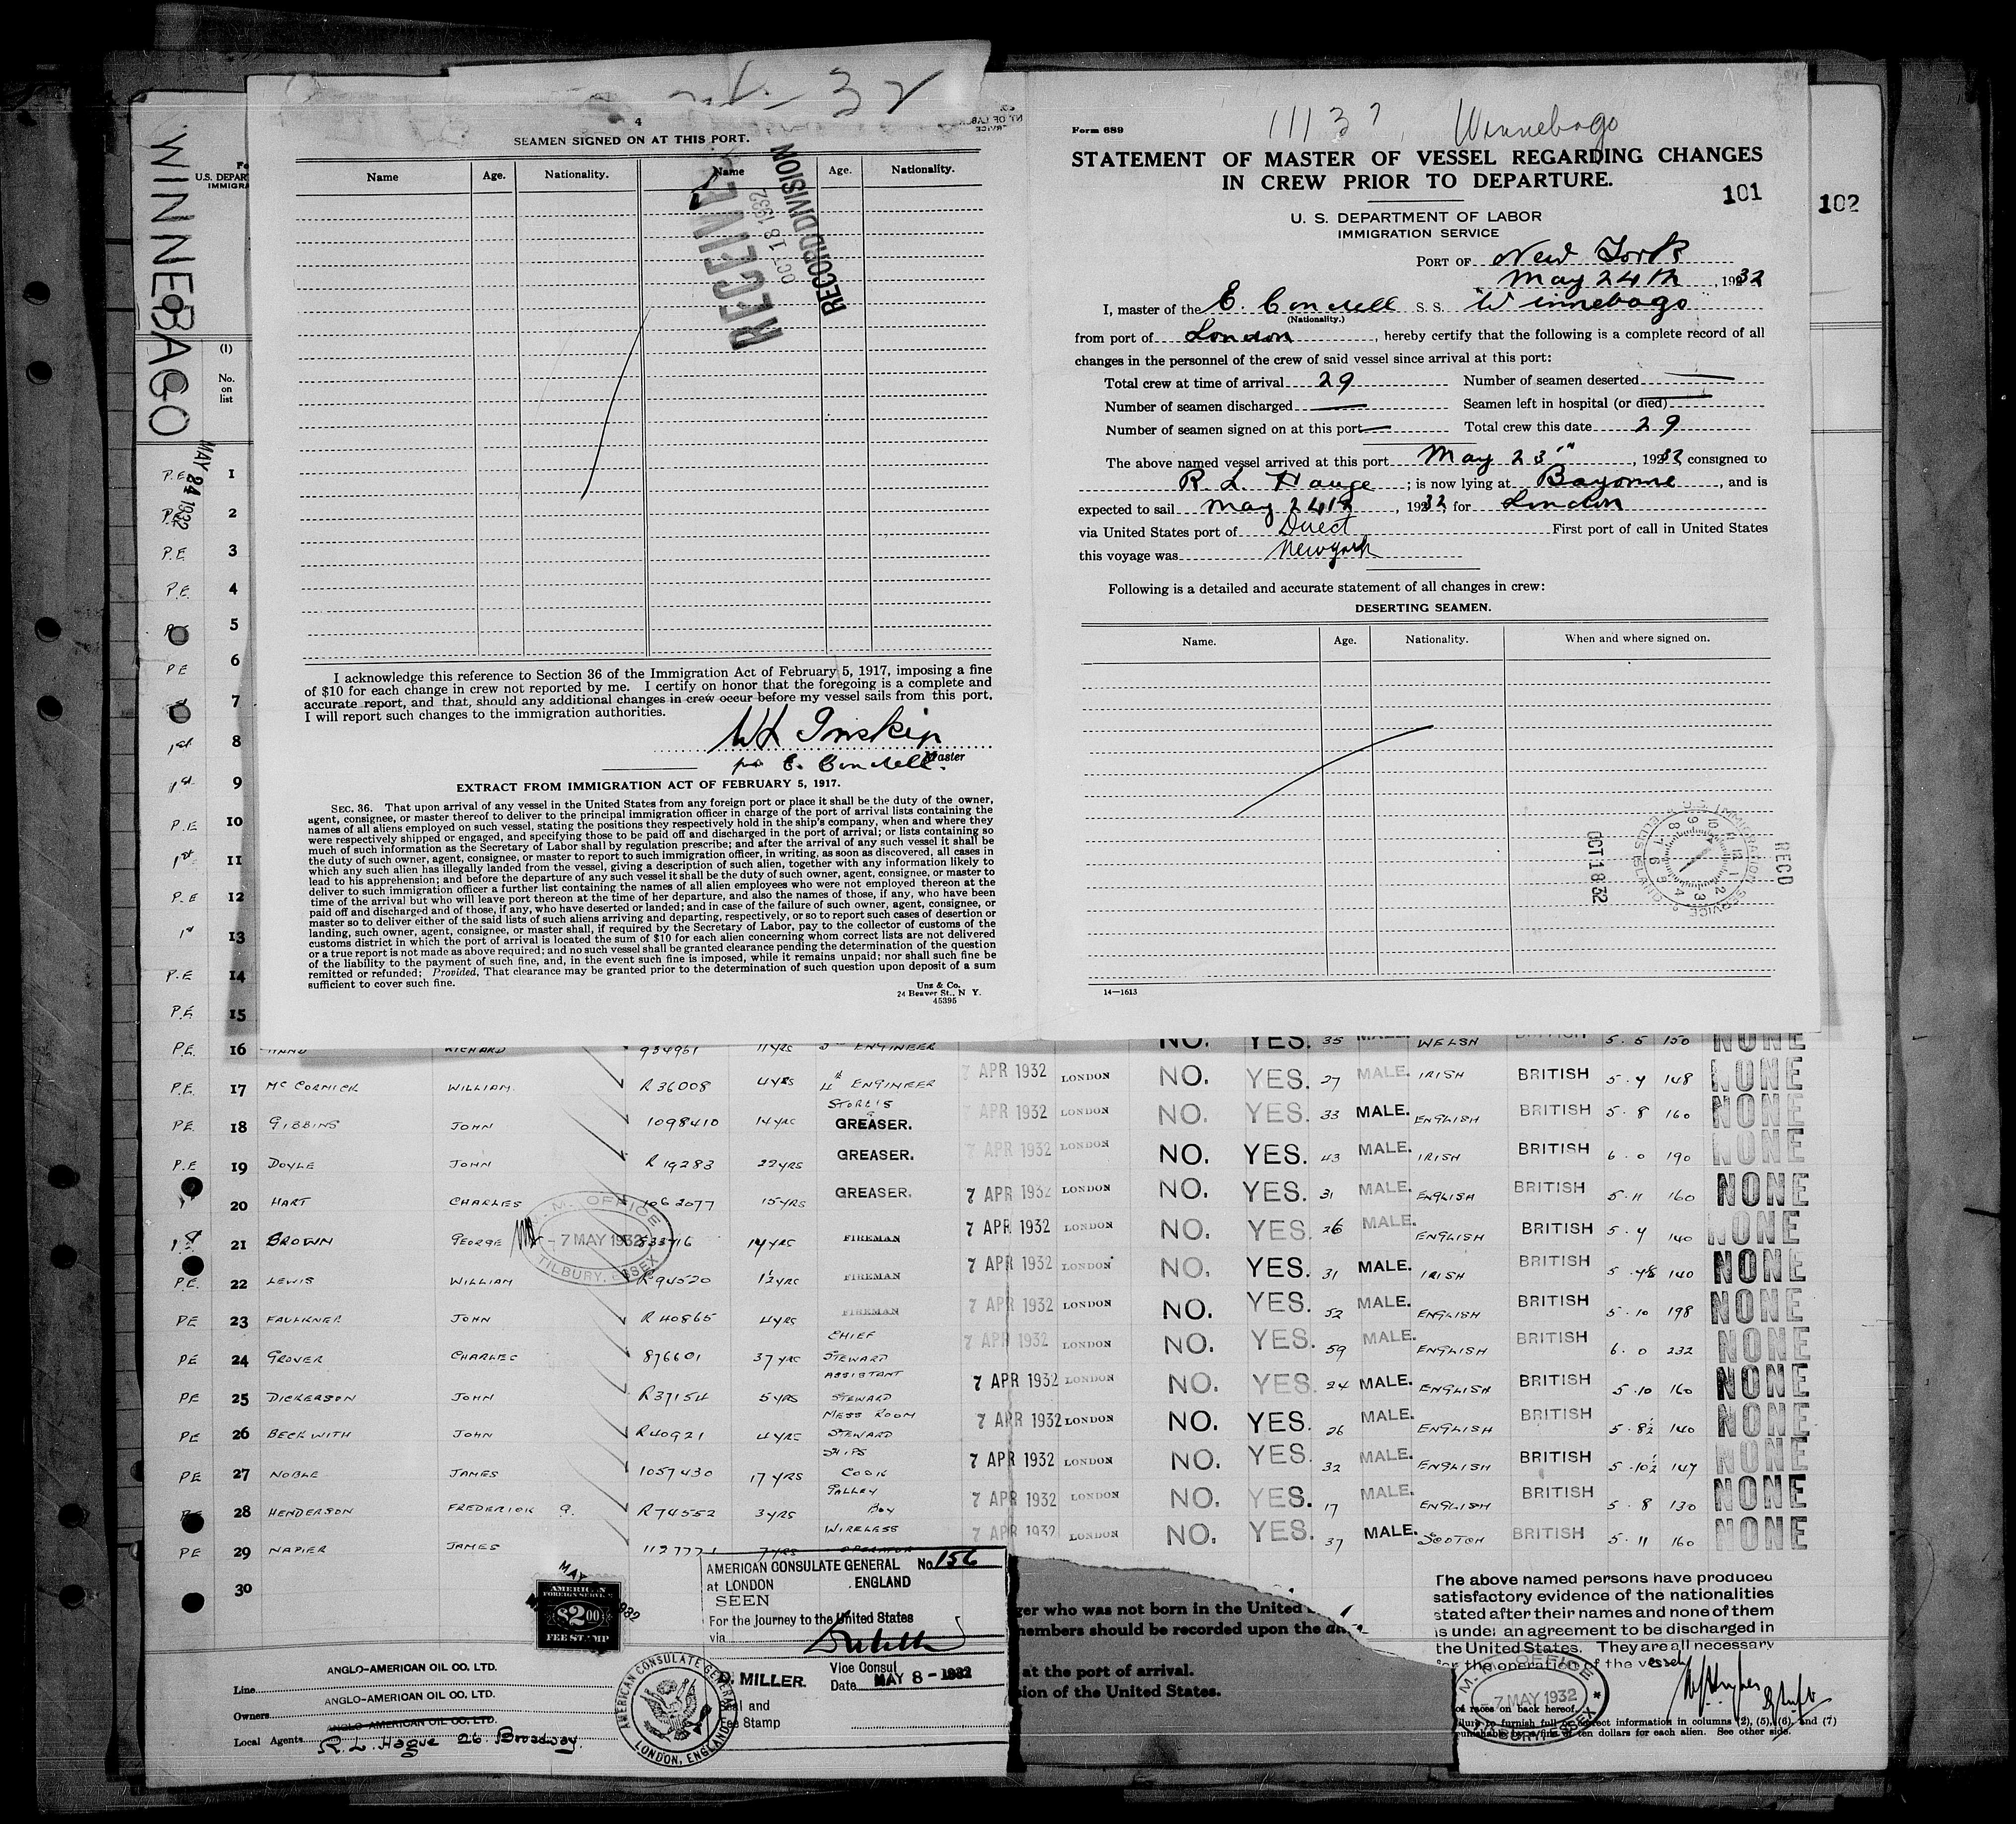 4
SEAMEN SIGNED ON AT THIS PORT.
Name Age. Nationality. Name Age. Nationality.
RECEIVED
OCT 18 1932
RECORD DIVISION
I acknowledge this reference to Section 36 of the Immigration Act of February 5, 1917, imposing a fine
of $10 for each change in crew not reported by me. I certify on honor that the foregoing is a complete and
accurate report, and that, should any additional changes in crew occur before my vessel sails from this port,
I will report such changes to the immigration authorities.
W L Inskip
Master
EXTRACT FROM IMMIGRATION ACT OF FEBRUARY 5, 1917.
SEC. 36. That upon arrival of any vessel in the United States from any foreign port or place it shall be the duty of the owner,
agent, consignee, or master thereof to deliver to the principal immigration officer in charge of the port of arrival lists containing the
names of all aliens employed on such vessel, stating the positions they respectively hold in the ship's company, when and where they
were respectively shipped or engaged, and specifying those to be paid off and discharged in the port of arrival; or lists containing so
much of such information as the Secretary of Labor shall by regulation prescribe; and after the arrival of any such vessel it shall be
the duty of such owner, agent, consignee, or master to report to such immigration officer, in writing, as soon as discovered, all cases in
which any such alien has illegally landed from the vessel, giving a description of such alien, together with any information likely to
lead to his apprehension; and before the departure of any such vessel it shall be the duty of such owner, agent, consignee, or master to
deliver to such immigration officer a further list containing the names of all alien employees who were not employed thereon at the
time of the arrival but who will leave port thereon at the time of her departure, and also the names of those, if any, who have been
paid off and discharged and of those, if any, who have deserted or landed; and in case of the failure of such owner, agent, consignee, or
master so to deliver either of the said lists of such aliens arriving and departing, respectively, or so to report such cases of desertion or
landing, such owner, agent, consignee, or master shall, if required by the Secretary of Labor, pay to the collector of customs of the
customs district in which the port of arrival is located the sum of $10 for each alien concerning whom correct lists are not delivered
or a true report is not made as above required; and no such vessel shall be granted clearance pending the determination of the question
of the liability to the payment of such fine, and, in the event such fine is imposed, while it remains unpaid; nor shall such fine be
remitted or refunded; Provided, That clearance may be granted prior to the determination of such question upon deposit of a sum
sufficient to cover such fine.
Unz & Co.
24 Beaver St., N Y.
45395
Form 689
Winnebago
STATEMENT OF MASTER OF VESSEL REGARDING CHANGES
IN CREW PRIOR TO DEPARTURE.
101
102
U. S. DEPARTMENT OF LABOR
IMMIGRATION SERVICE
PORT OF New York
May 24th, 1932
I, master of the E. Condell S. S. Winnebago
(Nationality.)
from port of London, hereby certify that the following is a complete record of all
changes in the personnel of the crew of said vessel since arrival at this port:
Total crew at time of arrival 29 Number of seamen deserted —
Number of seamen discharged — Seamen left in hospital (or died) —
Number of seamen signed on at this port — Total crew this date 29
The above named vessel arrived at this port May 23rd, 1932 consigned to
R. L. Hauge; is now lying at Bayonne, and is
expected to sail May 24th, 1932, for London
via United States port of Direct First port of call in United States
this voyage was New York
Following is a detailed and accurate statement of all changes in crew:
DESERTING SEAMEN.
Name. Age. Nationality. When and where signed on.
U.S. IMMIGRATION SERVICE
RECD
OCT 18 32
14—1613
WINNEBAGO
U.S. DEPAR
IMMIGRA
(1)
No.
on
list
MAY 24 1932
P.E 1
P.E 2
P.E 3
P.E. 4
5
PE 6
7
1st 8
1st 9
P.E 10
1st 11
P.E 12
1st 13
P.E 14
P.E 15
P.E. 16 RICHARD 954961 11 YRS ENGINEER NO. YES. 35 WELSH 5.5 150 NONE
P.E. 17 McCORMICK WILLIAM. R 36008 4 YRS 4th ENGINEER 7 APR 1932 LONDON NO. YES. 27 MALE. IRISH BRITISH 5.4 148 NONE
P.E. 18 GIBBINS JOHN 1098410 14 YRS STORE'S GREASER. APR 1932 LONDON NO. YES. 33 MALE. ENGLISH BRITISH 5.8 160 NONE
P.E 19 DOYLE JOHN R 19283 22 YRS GREASER. 7 APR 1932 LONDON NO. YES. 43 MALE. IRISH BRITISH 6.0 190 NONE
20 HART CHARLES 1062077 15 YRS GREASER. 7 APR 1932 LONDON NO. YES. 31 MALE. ENGLISH BRITISH 5.11 160 NONE
1st 21 BROWN GEORGE 14 YRS FIREMAN 7 APR 1932 LONDON NO. YES. 26 MALE. ENGLISH BRITISH 5.4 140 NONE
P.E. 22 LEWIS WILLIAM R 94520 1½ YRS FIREMAN 7 APR 1932 LONDON NO. YES. 31 MALE. IRISH BRITISH 140 NONE
PE 23 FAULKNER JOHN R 40865 4 YRS FIREMAN 7 APR 1932 LONDON NO. YES. 52 MALE. ENGLISH BRITISH 5.10 198 NONE
PE 24 GROVER CHARLES 876601 37 YRS CHIEF STEWARD 7 APR 1932 LONDON NO. YES. 59 MALE. ENGLISH BRITISH 6.0 232 NONE
PE 25 DICKERSON JOHN R37154 5 YRS ASSISTANT STEWARD 7 APR 1932 LONDON NO. YES. 24 MALE. ENGLISH BRITISH 5.10 160 NONE
PE 26 BECKWITH JOHN R40921 4 YRS MESS ROOM STEWARD 7 APR 1932 LONDON NO. YES. 26 MALE. ENGLISH BRITISH 5.8½ 140 NONE
PE 27 NOBLE JAMES 1057430 17 YRS SHIPS COOK 7 APR 1932 LONDON NO. YES. 32 MALE. ENGLISH BRITISH 5.10½ 147 NONE
PE 28 HENDERSON FREDERICK G. R74552 3 YRS GALLEY BOY 7 APR 1932 LONDON NO. YES. 17 MALE. ENGLISH BRITISH 5.8 130 NONE
PE 29 NAPIER JAMES 1127771 7 YRS WIRELESS OPERATOR 7 APR 1932 LONDON NO. YES. 37 MALE. SCOTCH BRITISH 5.11 160 NONE
30
M.M. OFFICE
- 7 MAY 1932
TILBURY, ESSEX
AMERICAN
FOREIGN SERVICE
$2.00
FEE STAMP
AMERICAN CONSULATE GENERAL No. 156
at LONDON ENGLAND
SEEN
For the journey to the United States
via
D. MILLER. Vice Consul
Date MAY 8 - 1932
Seal and
Fee Stamp
AMERICAN CONSULATE GENERAL
LONDON, ENGLAND
Line ANGLO-AMERICAN OIL CO. LTD.
Owners ANGLO-AMERICAN OIL CO. LTD.
ANGLO-AMERICAN OIL CO. LTD.
Local Agents R. L. Hague 26 Broadway.
ger who was not born in the United
members should be recorded upon the
at the port of arrival.
sion of the United States.
The above named persons have produced
satisfactory evidence of the nationalities
stated after their names and none of them
is under an agreement to be discharged in
the United States. They are all necessary
for the operation of the vessel
M.M. OFFICE
- 7 MAY 1932
TILBURY, ESSEX
of races on back hereof.
ilure to furnish full or correct information in columns (2), (5), (6), and (7)
punishable by a fine of ten dollars for each alien. See other side.